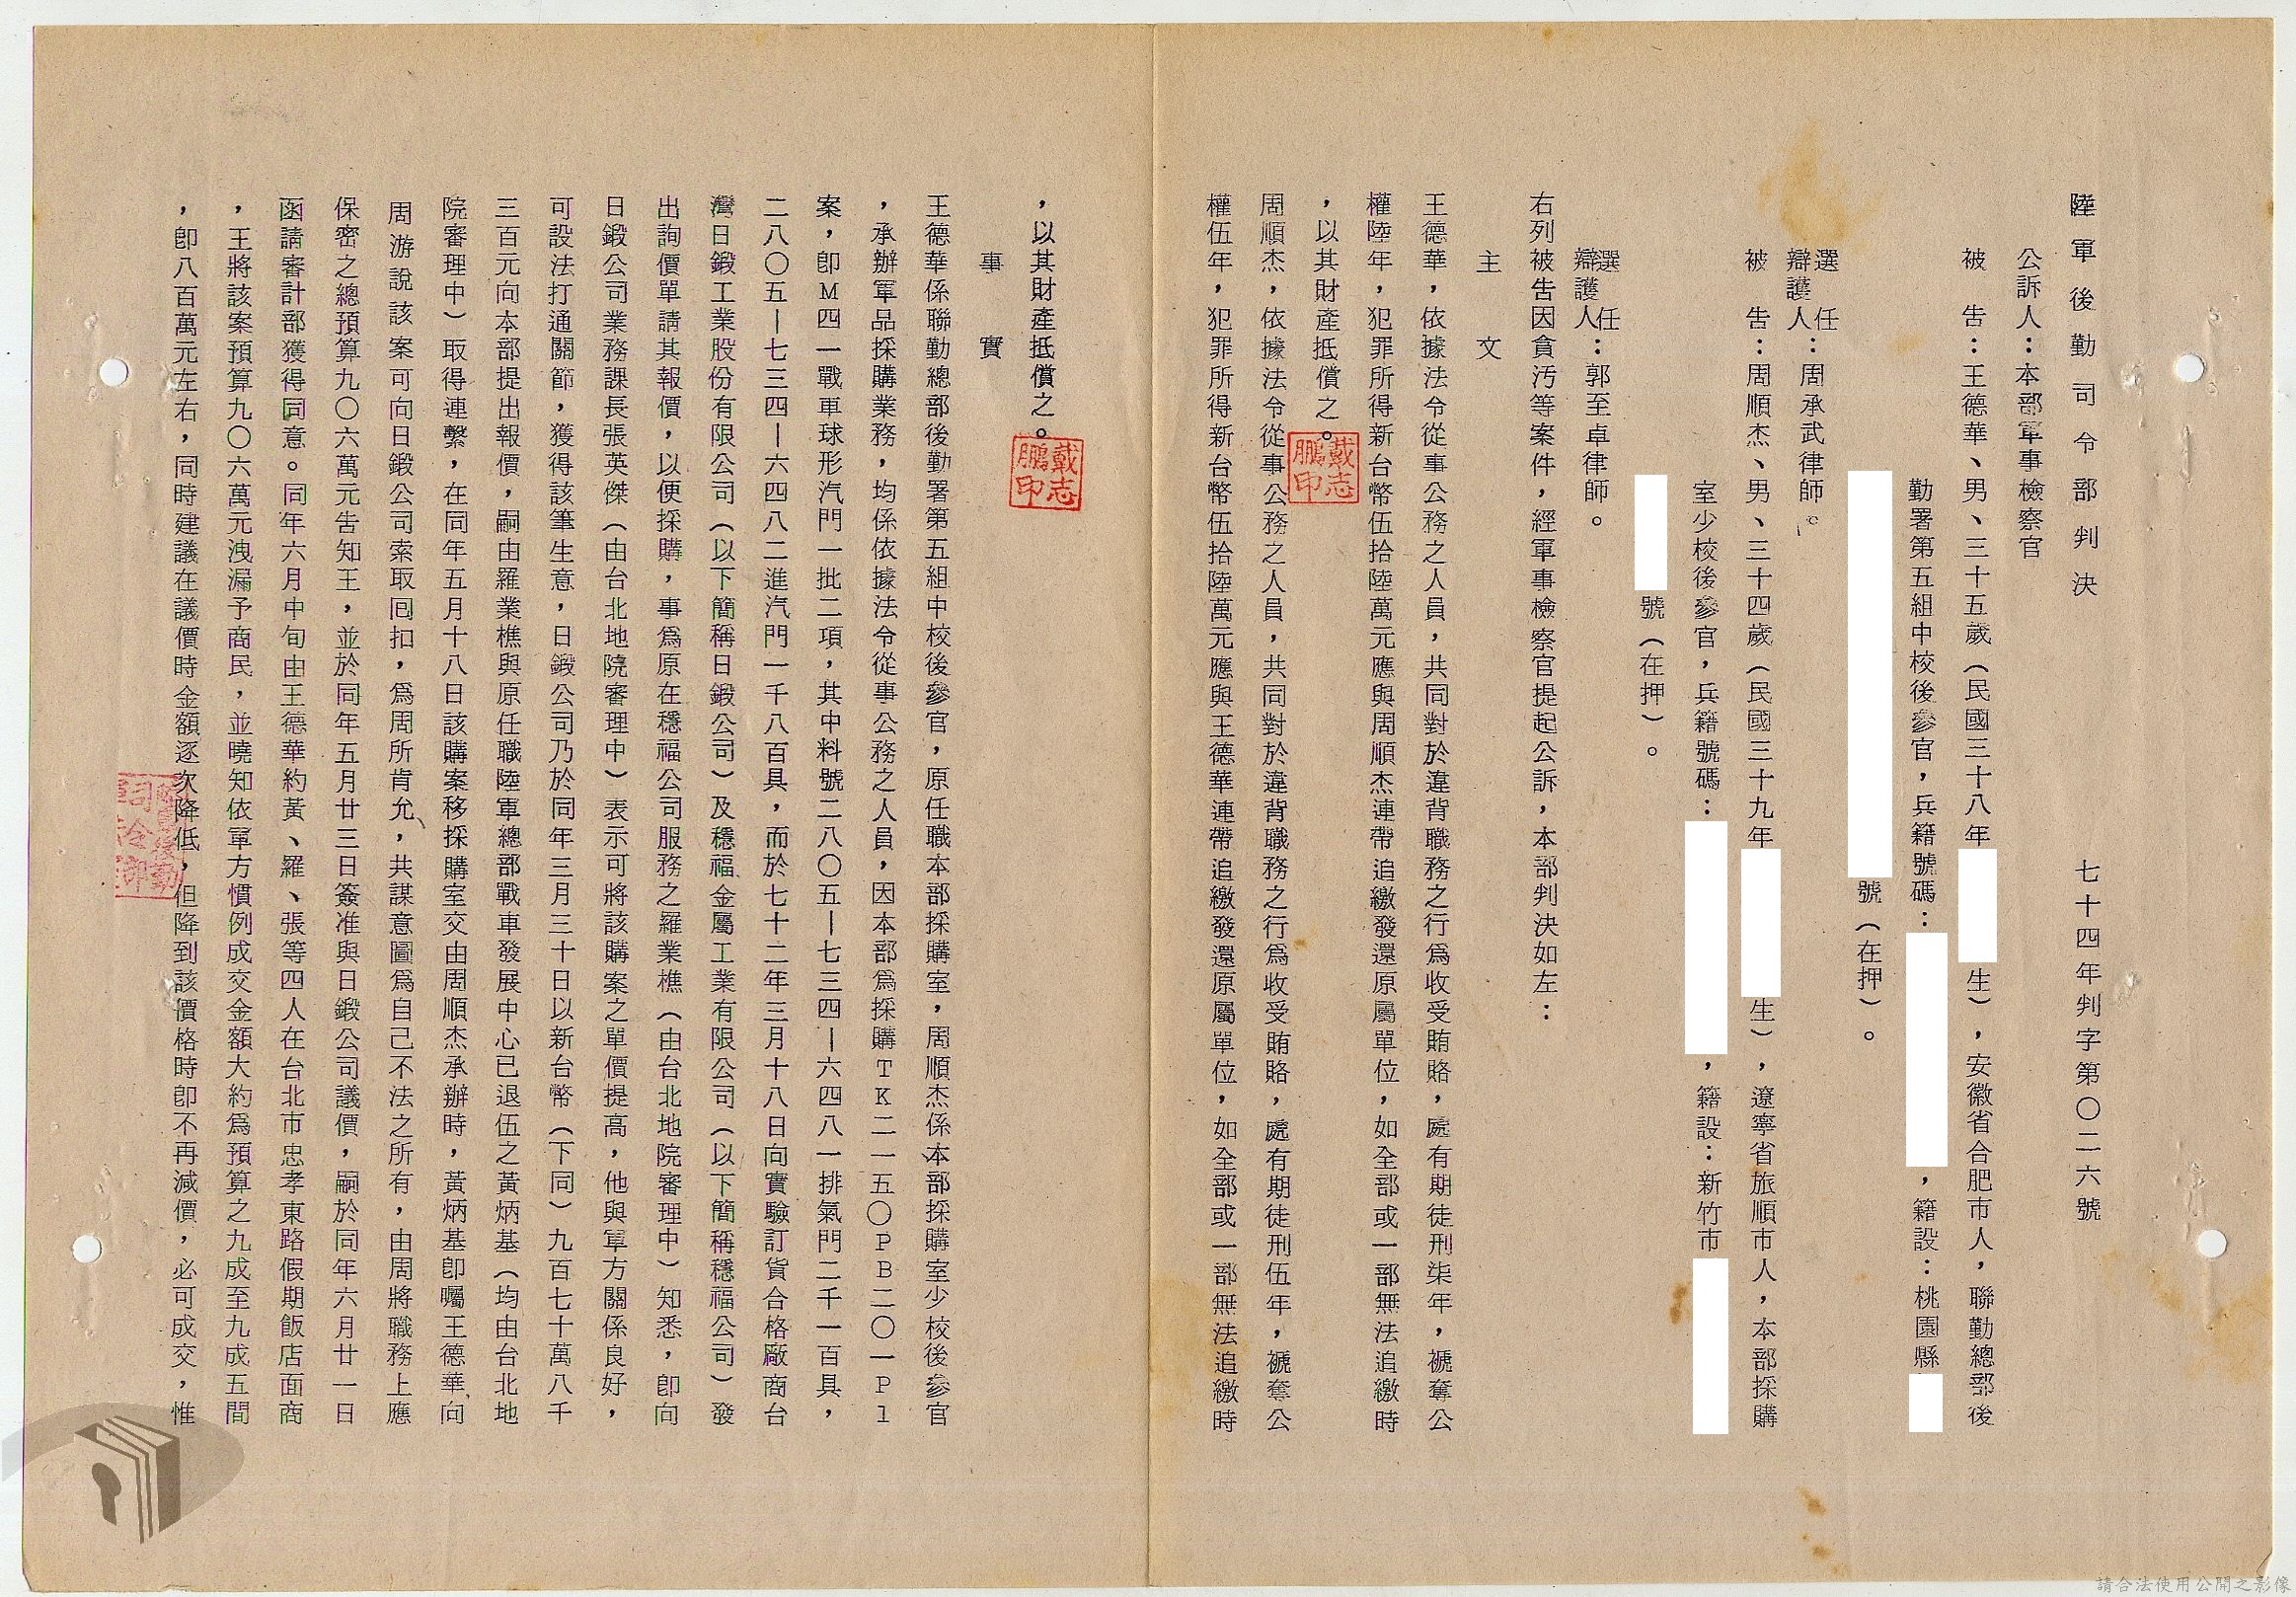 陸軍後勤司令部判決　七十四年判字第〇二六號
公訴人：本部軍事檢察官
被告：王德華、男、三十五歲（民國三十八年
生），安徽省合肥市人，聯勤總部後
勤署第五組中校後參官，兵籍號碼：
，籍設：桃園縣
號（在押）。
選任辯護人：周承武律師。
被告：周順杰、男、三十四歲（民國三十九年
生），遼寧省旅順市人，本部採購
室少校後參官，兵籍號碼：
，籍設：新竹市
號（在押）。
選任辯護人：郭至卓律師。
右列被告因貪汚等案件，經軍事檢察官提起公訴，本部判決如左：
主文
王德華，依據法令從事公務之人員，共同對於違背職務之行為收受賄賂，處有期徒刑柒年，褫奪公
權陸年，犯罪所得新台幣伍拾陸萬元應與周順杰連帶追繳發還原屬單位，如全部或一部無法追繳時
，以其財產抵償之。
周順杰，依據法令從事公務之人員，共同對於違背職務之行為收受賄賂，處有期徒刑伍年，褫奪公
權伍年，犯罪所得新台幣伍拾陸萬元應與王德華連帶追繳發還原屬單位，如全部或一部無法追繳時
，以其財產抵償之。
戴志鵬印
戴志鵬印
事實
王德華係聯勤總部後勤署第五組中校後參官，原任職本部採購室，周順杰係本部採購室少校後參官
，承辦軍品採購業務，均係依據法令從事公務之人員，因本部為採購TK二一五〇PB二〇一P1
案，卽M四一戰車球形汽門一批二項，其中料號二八〇五—七三四—六四八一排氣門二千一百具，
二八〇五—七三四—六四八二進汽門一千八百具，而於七十二年三月十八日向實驗訂貨合格廠商台
灣日鍛工業股份有限公司（以下簡稱日鍛公司）及穩福金屬工業有限公司（以下簡稱穩福公司）發
出詢價單請其報價，以便採購，事為原在穩福公司服務之羅業樵（由台北地院審理中）知悉，卽向
日鍛公司業務課長張英傑（由台北地院審理中）表示可將該購案之單價提高，他與軍方關係良好，
可設法打通關節，獲得該筆生意，日鍛公司乃於同年三月三十日以新台幣（下同）九百七十萬八千
三百元向本部提出報價，嗣由羅業樵與原任職陸軍總部戰車發展中心已退伍之黃炳基（均由台北地
院審理中）取得連繫，在同年五月十八日該購案移採購室交由周順杰承辦時，黃炳基卽囑王德華向
周游說該案可向日鍛公司索取回扣，為周所肯允，共謀意圖為自己不法之所有，由周將職務上應
保密之總預算九〇六萬元告知王，並於同年五月廿三日簽准與日鍛公司議價，嗣於同年六月廿一日
函請審計部獲得同意。同年六月中旬由王德華約黃、羅、張等四人在台北市忠孝東路假期飯店面商
，王將該案預算九〇六萬元洩漏予商民，並曉知依軍方慣例成交金額大約為預算之九成至九成五間
，卽八百萬元左右，同時建議在議價時金額逐次降低，但降到該價格時卽不再減價，必可成交，惟
請合法使用公開之影像